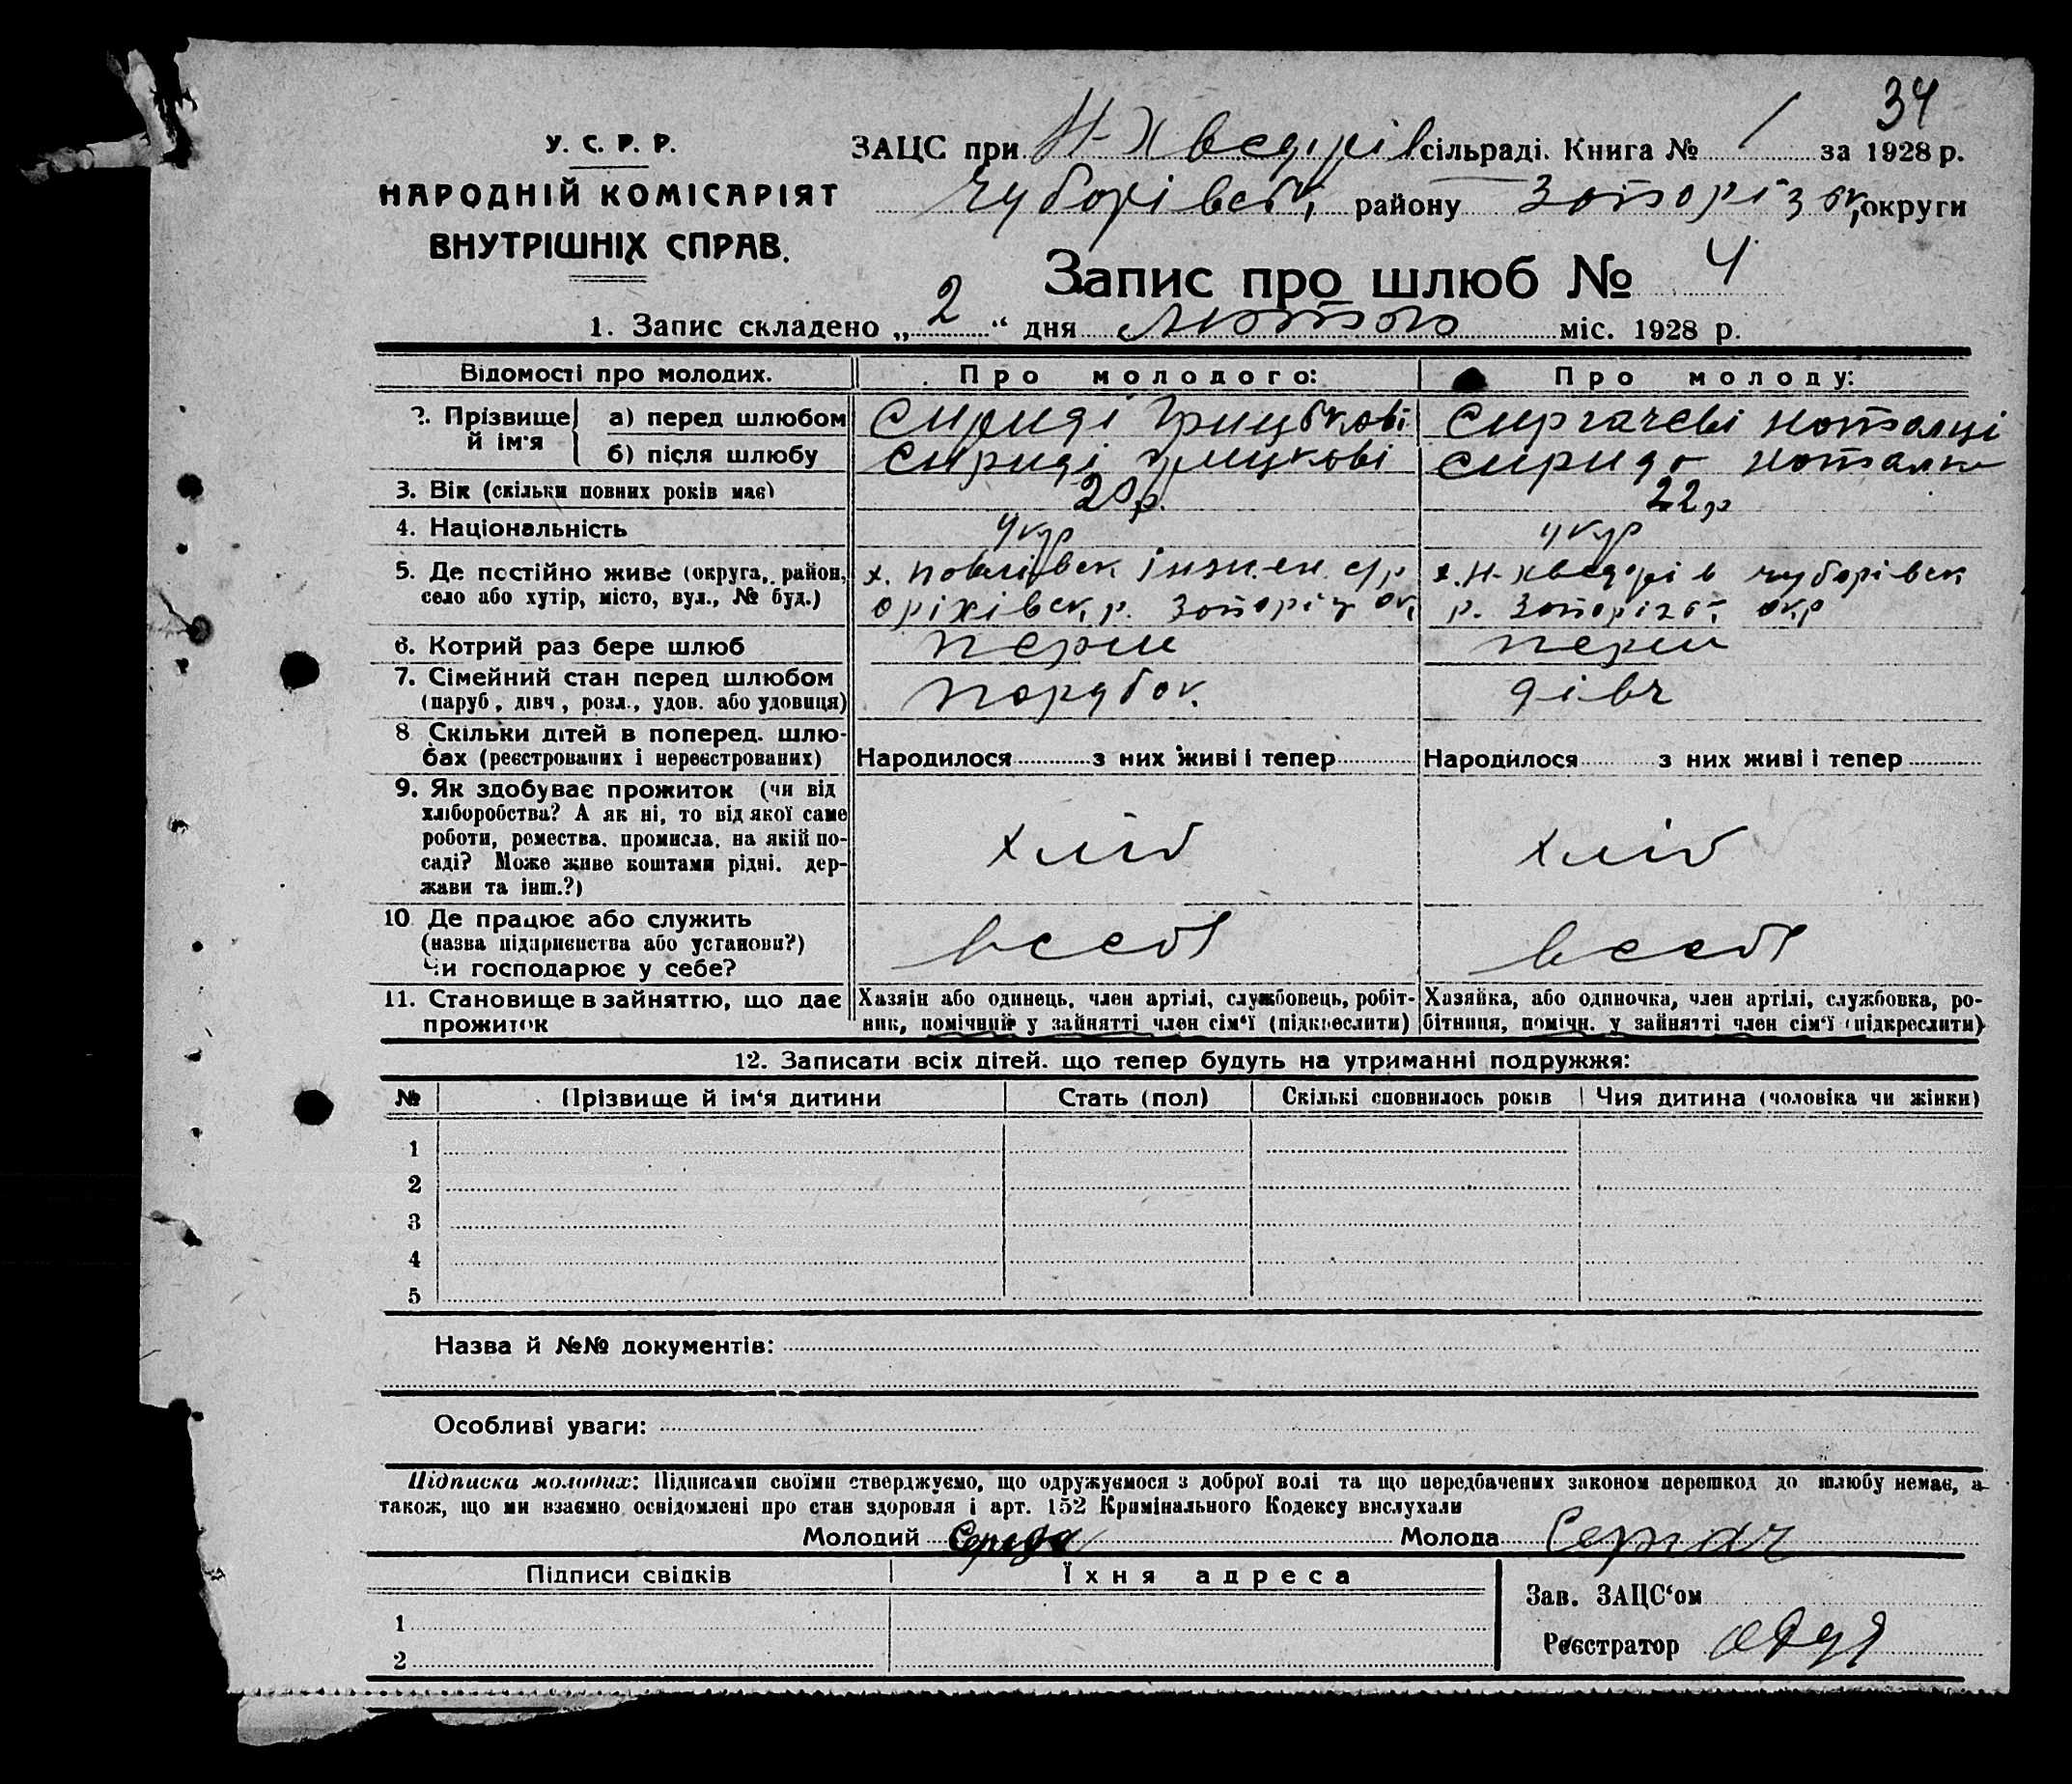 34
У. С. Р. Р.
НАРОДНІЙ КОМІСАРІЯТ
ВНУТРІШНІХ СПРАВ.
ЗАЦС при Н-Хведорів сільраді. Книга № 1 за 1928 р.
Чубарівськ району Запоріз ок, округи
Запис про шлюб № 4
1. Запис складено „ 2 “ дня лютого міс. 1928 р.
Відомості про молодих. Про молодого: Про молоду:
2. Прізвище й ім'я
а) перед шлюбом Сириді Грицькові Сиргачеві Наталці
б) після шлюбу Сириді Грицкові Сирида Наталк
3. Вік (скільки повних років має) 20 р. 22 р
4. Національність укр укр
5. Де постійно живе (округа, район, х. Павлівськ с/р х. Н-Хведорів Чубарівськ
село або хутір, місто, вул., № буд.) Оріхівськ, р. Запоріз ок, р. Запорізьк окр
6. Котрий раз бере шлюб перш перш
7. Сімейний стан перед шлюбом парубок. дівч
(паруб., дівч, розл., удов. або удовиця)
8 Скільки дітей в поперед. шлю-
бах (реєстрованих і нереєстрованих) Народилося з них живі і тепер Народилося з них живі і тепер
9. Як здобуває прожиток (чи від
хліборобства? А як ні, то від якої саме
роботи, ремества, промисла, на якій по- хліб хліб
саді? Може живе коштами рідні, дер-
жави та інш.?)
10 Де працює або служить
(назва підприємства або установи?) в себе в себе
Чи господарює у себе?
11. Становище в зайняттю, що дає Хазяїн або одинець, член артілі, службовець, робіт- Хазяйка, або одиночка, член артілі, службовка, ро-
прожиток ник, помічний у зайнятті член сім'ї (підкреслити) бітниця, помічн. у зайнятті член сім'ї (підкреслити)
12. Записати всіх дітей, що тепер будуть на утриманні подружжя:
№ Прізвище й ім'я дитини Стать (пол) Скількі сповнилось років Чия дитина (чоловіка чи жінки)
1
2
3
4
5
Назва й №№ документів:
Особливі уваги:
Підписка молодих: Підписами своїми стверджуємо, що одружуємося з доброї волі та що передбачених законом перешкод до шлюбу немає, а
також, що ми взаємно освідомлені про стан здоровля і арт. 152 Кримінального Кодексу вислухали
Молодий Середа Молода Сергач
Підписи свідків Їхня адреса
Зав. ЗАЦС'ом
1
Реєстратор
2